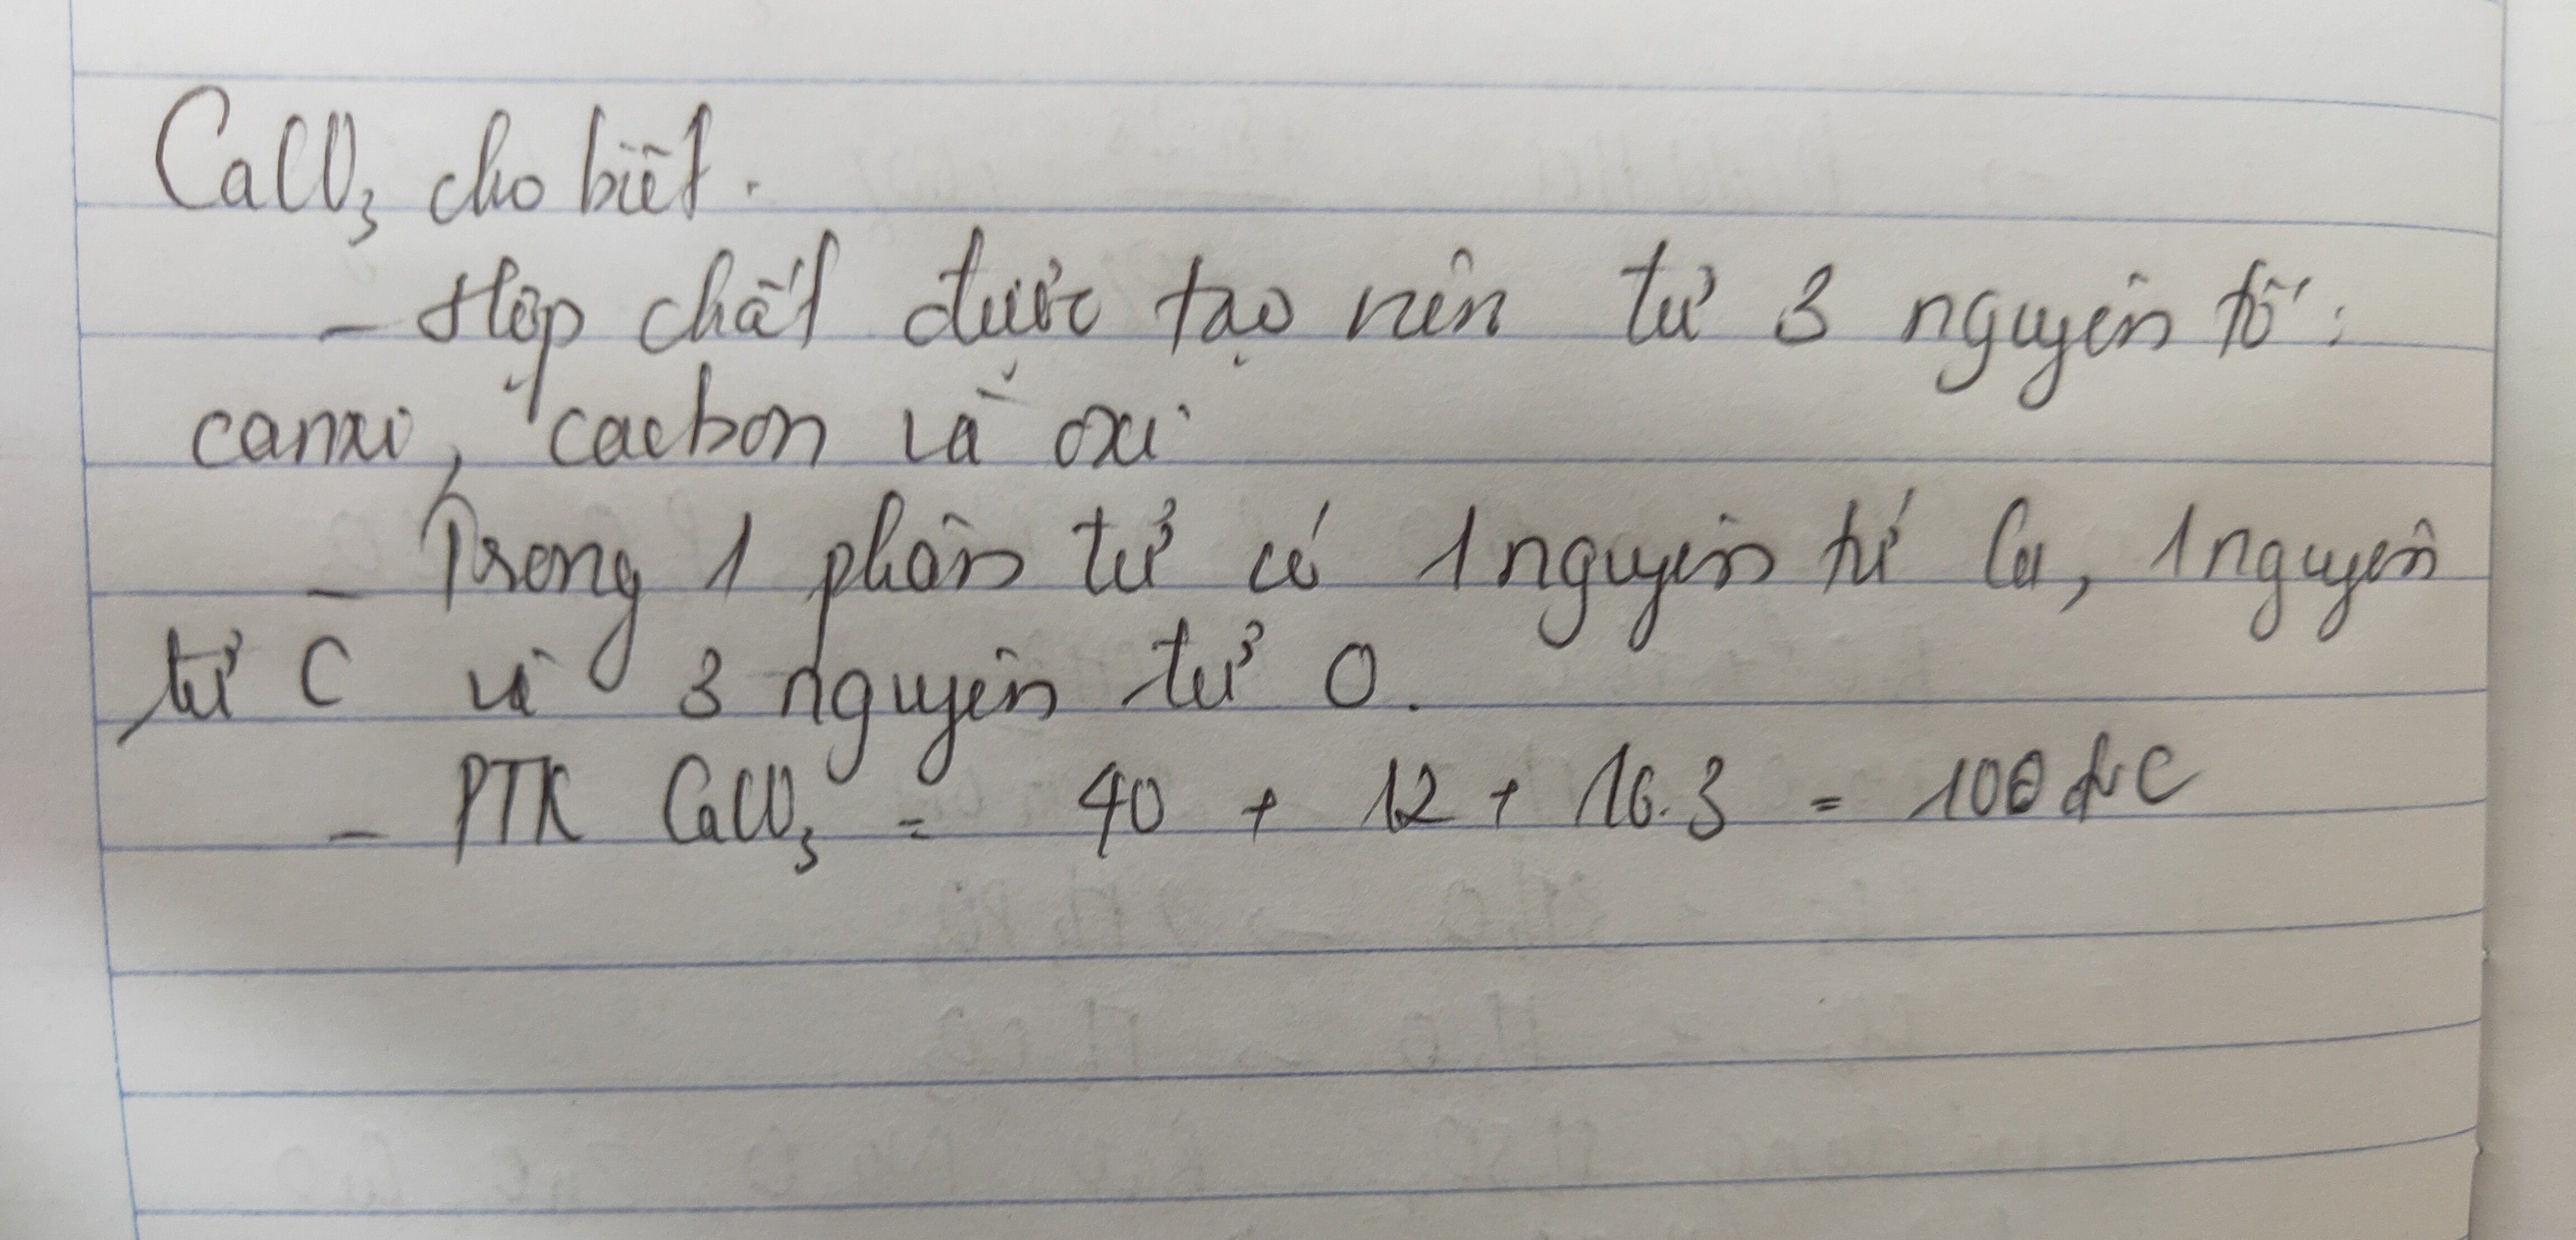 CaCO₃ cho biết.
- Hợp chất được tạo nên từ 3 nguyên tố:
canxi, cacbon và oxi
- Trong 1 phân tử có 1 nguyên tử Ca, 1 nguyên
tử C và 3 nguyên tử O.
- PTK CaCO₃ = 40 + 12 + 16.3 = 100 đvC